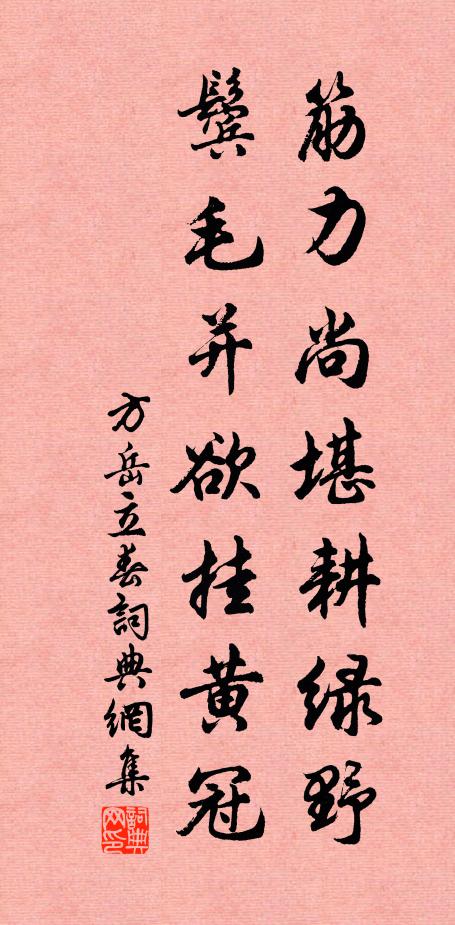 筋力尚堪耕绿野
鬓毛并欲挂黄冠
方岳立春詞典網集
詞典网印